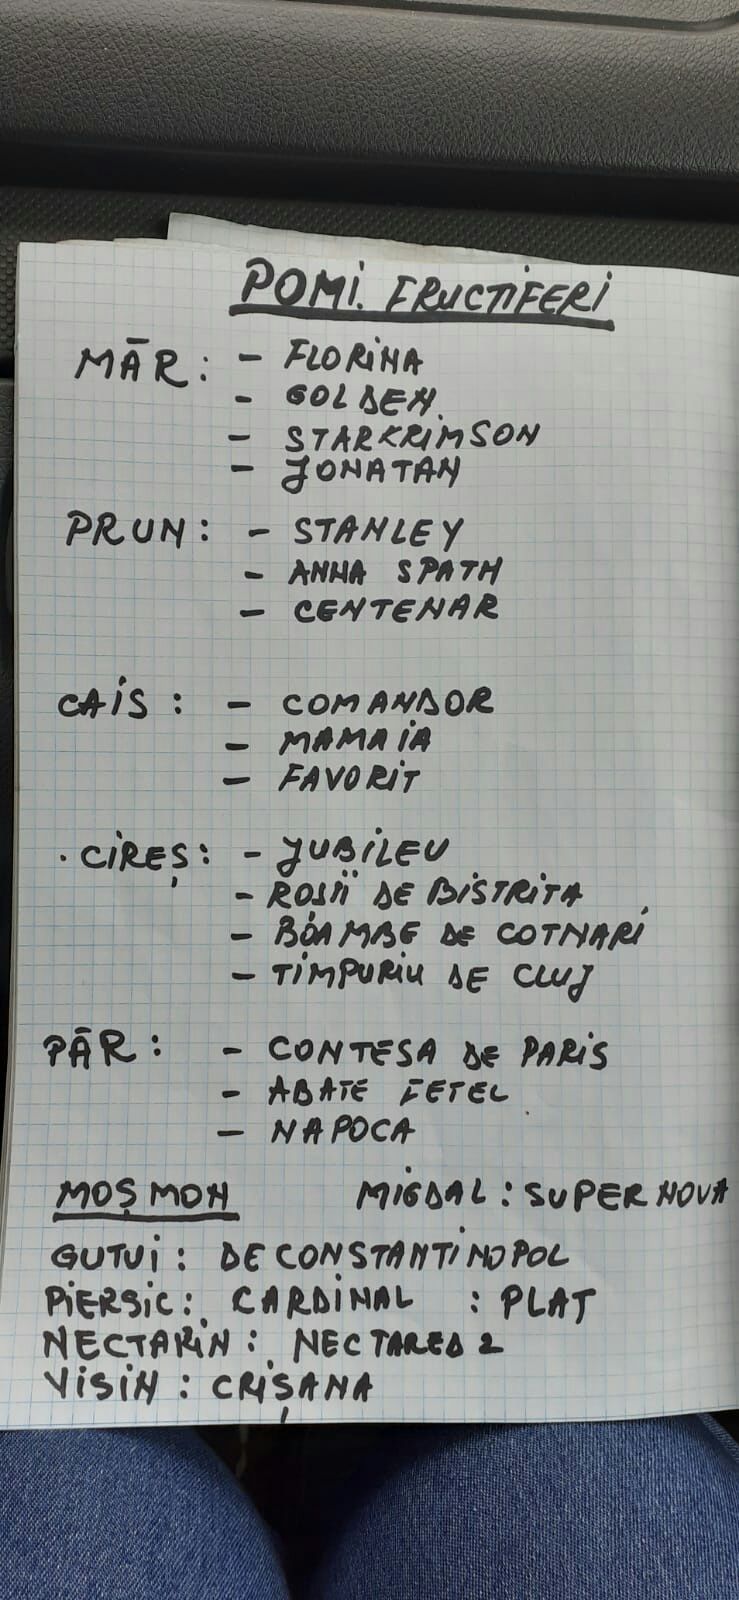 POMI. FRUCTIFERI
MĂR: - FLORINA
- GOLDEN.
- STARKRIMSON
- JONATAN
PRUN: - STANLEY
- ANNA SPATH
- CENTENAR
CAIS: - COMANDOR
- MAMAIA
- FAVORIT
. CIREȘ: - JUBILEU
- ROȘII DE BISTRITA
- BOAMBE DE COTNARI
- TIMPURIU DE CLUJ
PĂR: - CONTESA DE PARIS
- ABATE FETEL
- NAPOCA
MOȘMON MIGDAL: SUPER NOVA
GUTUI: DE CONSTANTINOPOL
PIERSIC: CARDINAL : PLAT
NECTARIN: NECTARED 2
VISIN: CRIȘANA